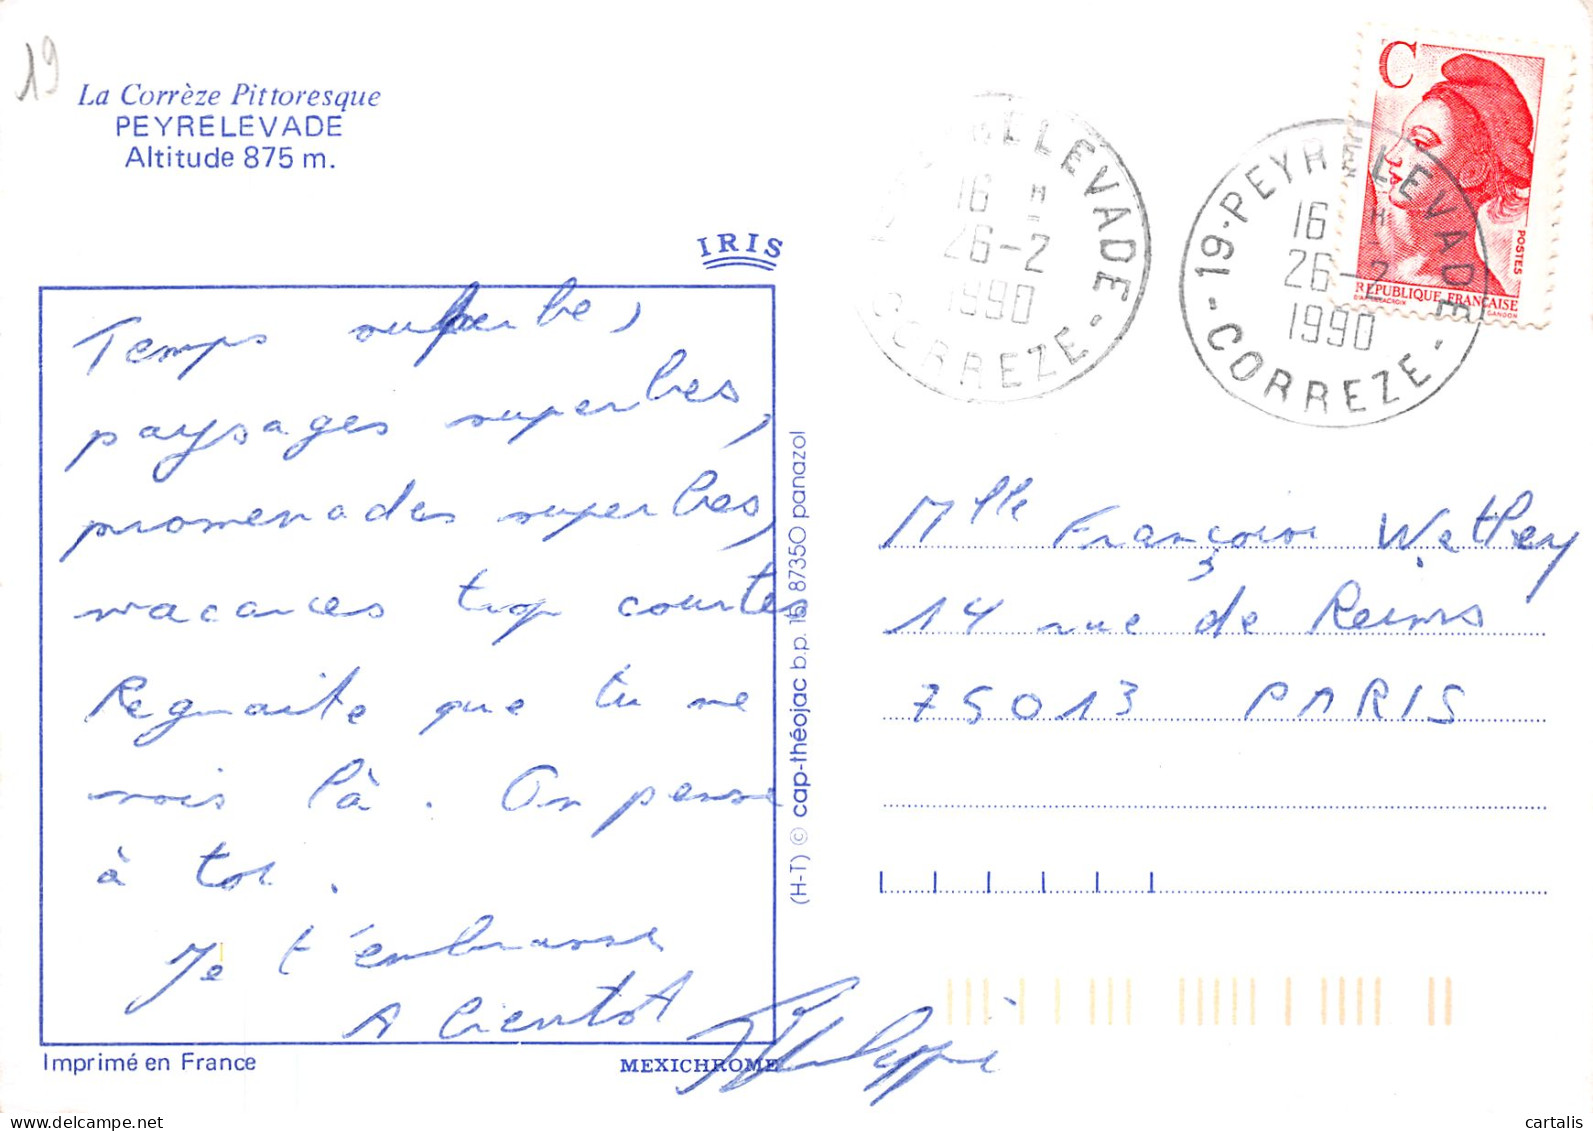 19
La Corrèze Pittoresque
PEYRELEVADE
Altitude 875 m.
IRIS
Temps superbe,
paysages superbes,
promenades superbes,
vacances trop courtes
Regrette que tu ne
sois là. On pense
à toi.
Je t'embrasse
A bientôt
Philippe
Imprimé en France
MEXICHROME
(H-T) © cap-théojac b.p. 15 87350 panazol
LEVADE
16 H
26-2
1990
CORREZE-
19-PEYRELEVADE
16 H
26-2
1990
-CORREZE-
C
POSTES
RÉPUBLIQUE FRANÇAISE
D'APRÈS DELACROIX
GANDON
Mlle Françoise
14 rue de Reims
75013 PARIS
cartalis
delcampe.net